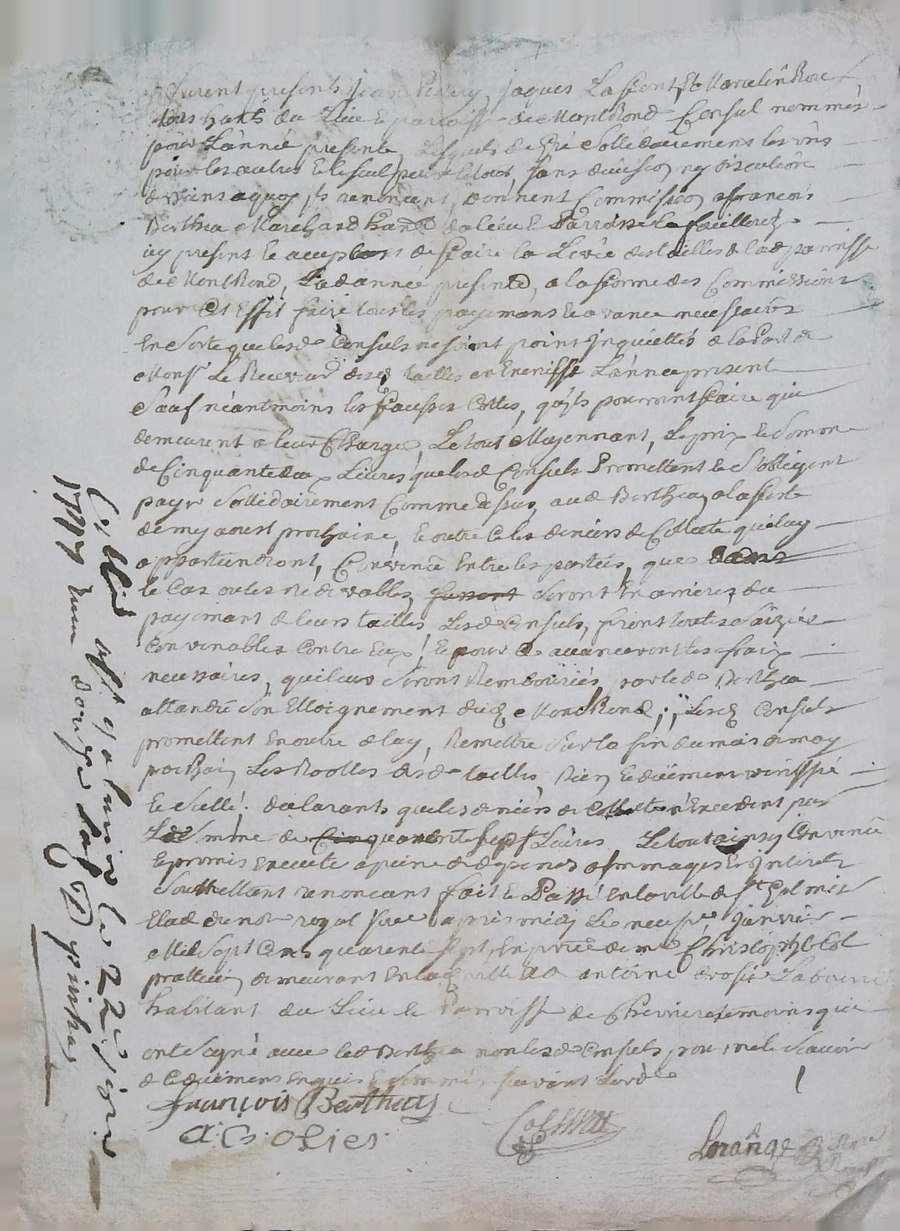 furent presents Jean Jaques Lafont et Marcelin Roze
tous habts du Lieu e parroisse de Montrond Consul nommés
pour L'année presente Lesquels de Gré Sollidairement les uns
pour les autres le seul pour le tout sans division ny discution
de biens a quoy ils renoncent, donnent Commission a françois
Berthea Marchand habt du lieu e Parroisse
icy present et acceptant de faire la Levée des tailles de lad parroisse
de Montrond, Lad année presente, a la forme des Commissions
pour Cet effet faire tous les payemans et avance necessaires
En Sorte que lesd Consuls ne soint point Inquiettés de la Part de
Monsr Le Receveur desd tailles en Lannee present
Sauf néantmoins les fausses Cottes, qu'ils pourront faire qui
demeurent a leur Charge, Le tout Moyennant, Le prix e Somme
de Cinquante deux Livres que lesd Consuls Promettent e S'obligent
payer Sollidairement Comme dessus, aud Berthea, a la feste
de my aoust prochaine, e outre Ce les deniers de Collecte qui luy
appartiendront, Convenu Entre les parties, que dans
le Cas ou les redevables, fussent Seront En arrieres, du
payemant de leurs tailles Lesd Consuls, feront toutes Saizies
Convenables Contre Eux, e pour Ce avanceront les fraix
necessaires, qui leur Seront Rembourcés, par led Berthea
attandu Son Elloignement dud Montrond; Lesd Consuls
promettent En outre de luy, Remettre Sur la fin du mois de may
prochain Les Roolles desd tailles, Bien e duëment veriffié
e Scellé. declarants que les deniers de Collecte n'Excedent pas
La Somme de Cinquante Sept Livres Le tout ainsy Convenu
e promis executé a peine de dépens dommages e Interets
Soumettant renoncant fait e Passé En la ville de St Galmier
Etude du notre royal Sre apres midy Le neufe Janvier
Mil Sept Cens quarente Sept En prece de me Christophle Col
pratticien demeurant En lad ville e antoine
habitant du Lieu e Parroisse de Chevrieres temoins qui
ont Signé avec led Berthea non lesd Consuls, pour ne le Scavoir
de Ce duëment Enquis e Sommés Suivant Lord
françois Berthea
a Gorlier
Col
Lorange
Nre
Royal
Collé a St galmier le 22e Janv
1747 Recu douze sols